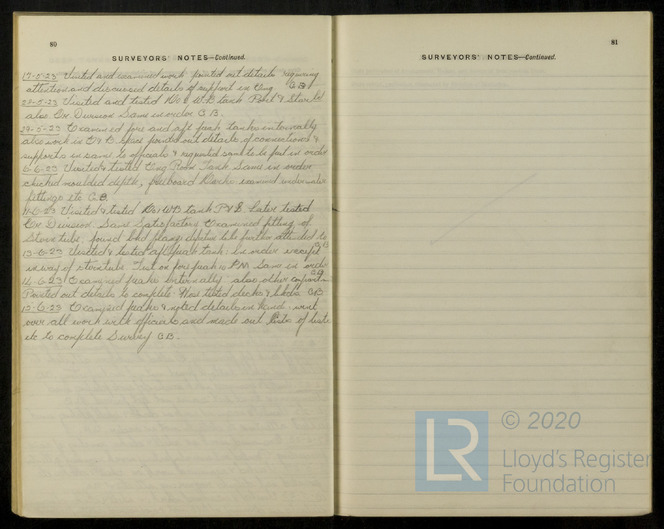 80
SURVEYORS' NOTES—Continued.
17-5-23 Visited and examined work pointed out details requiring
attention and discussed details of support in Eng CB
22-5-23 Visited and tested No 2 W.B. tank Port & Starbd
also Cen Division Same in order C.B.
29-5-23 Examined fore and aft peak tanks internally
also work in pointed out details of connections &
supports in same to officials & requested same to be put in order
6-6-23 Visited & tested Eng Room Tank Same in order
checked moulded depth, freeboard Marks examined underwater
fittings etc C.B.
11-6-23 Visited & tested WB tank P & S. Later tested
Cen Division. Same Satisfactory Examined fitting of
Stern tube, found bhd flange to be further attended to
13-6-23 Visited & tested aft peak tank. in order except
in way of sterntube. Test on fore peak in P.M. Same in order
14-6-23 Examined peaks internally also other
Pointed out details to complete Hose tested decks & bhds CB
15-6-23 Examined peaks & noted details in hand. went
over all work with officials and made out lists of tests
etc to complete Survey C.B.
81
SURVEYORS' NOTES—Continued.
LR
© 2020
Lloyd's Register
Foundation